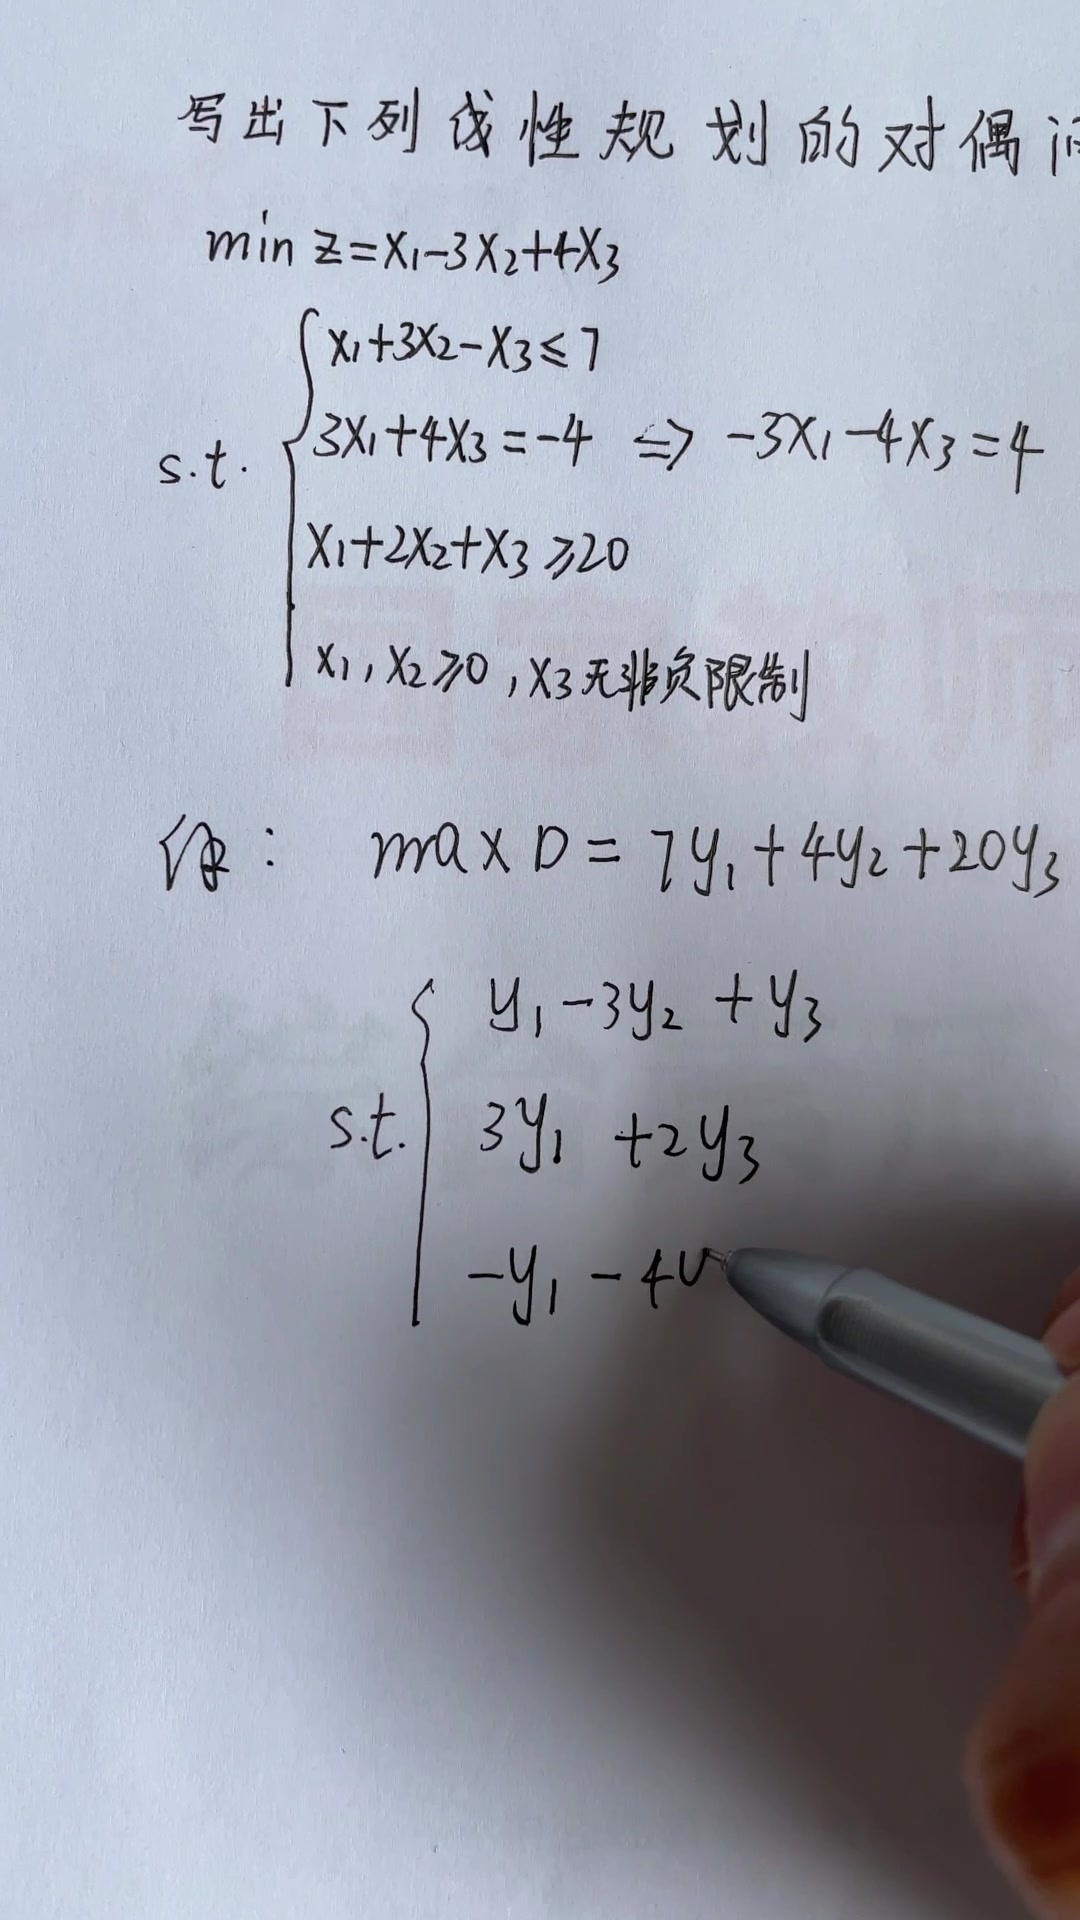 写出下列线性规划的对偶
min z=x₁-3x₂+4x₃
x₁+3x₂-x₃≤7
3x₁+4x₃=-4 ⇔ -3x₁-4x₃=4
s.t.
x₁+2x₂+x₃≥20
x₁,x₂≥0,x₃无非负限制
解: max D=7y₁+4y₂+20y₃
y₁-3y₂+y₃
s.t. 3y₁+2y₃
-y₁-4